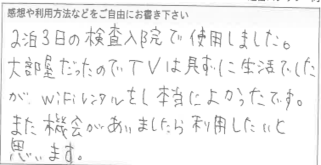 感想や利用方法などをご自由にお書き下さい
2泊3日の検査入院で使用しました。
大部屋だったのでTVは見ずに生活でした
が、WiFiレンタルをし本当によかったです。
また機会がありましたら利用したいと
思います。